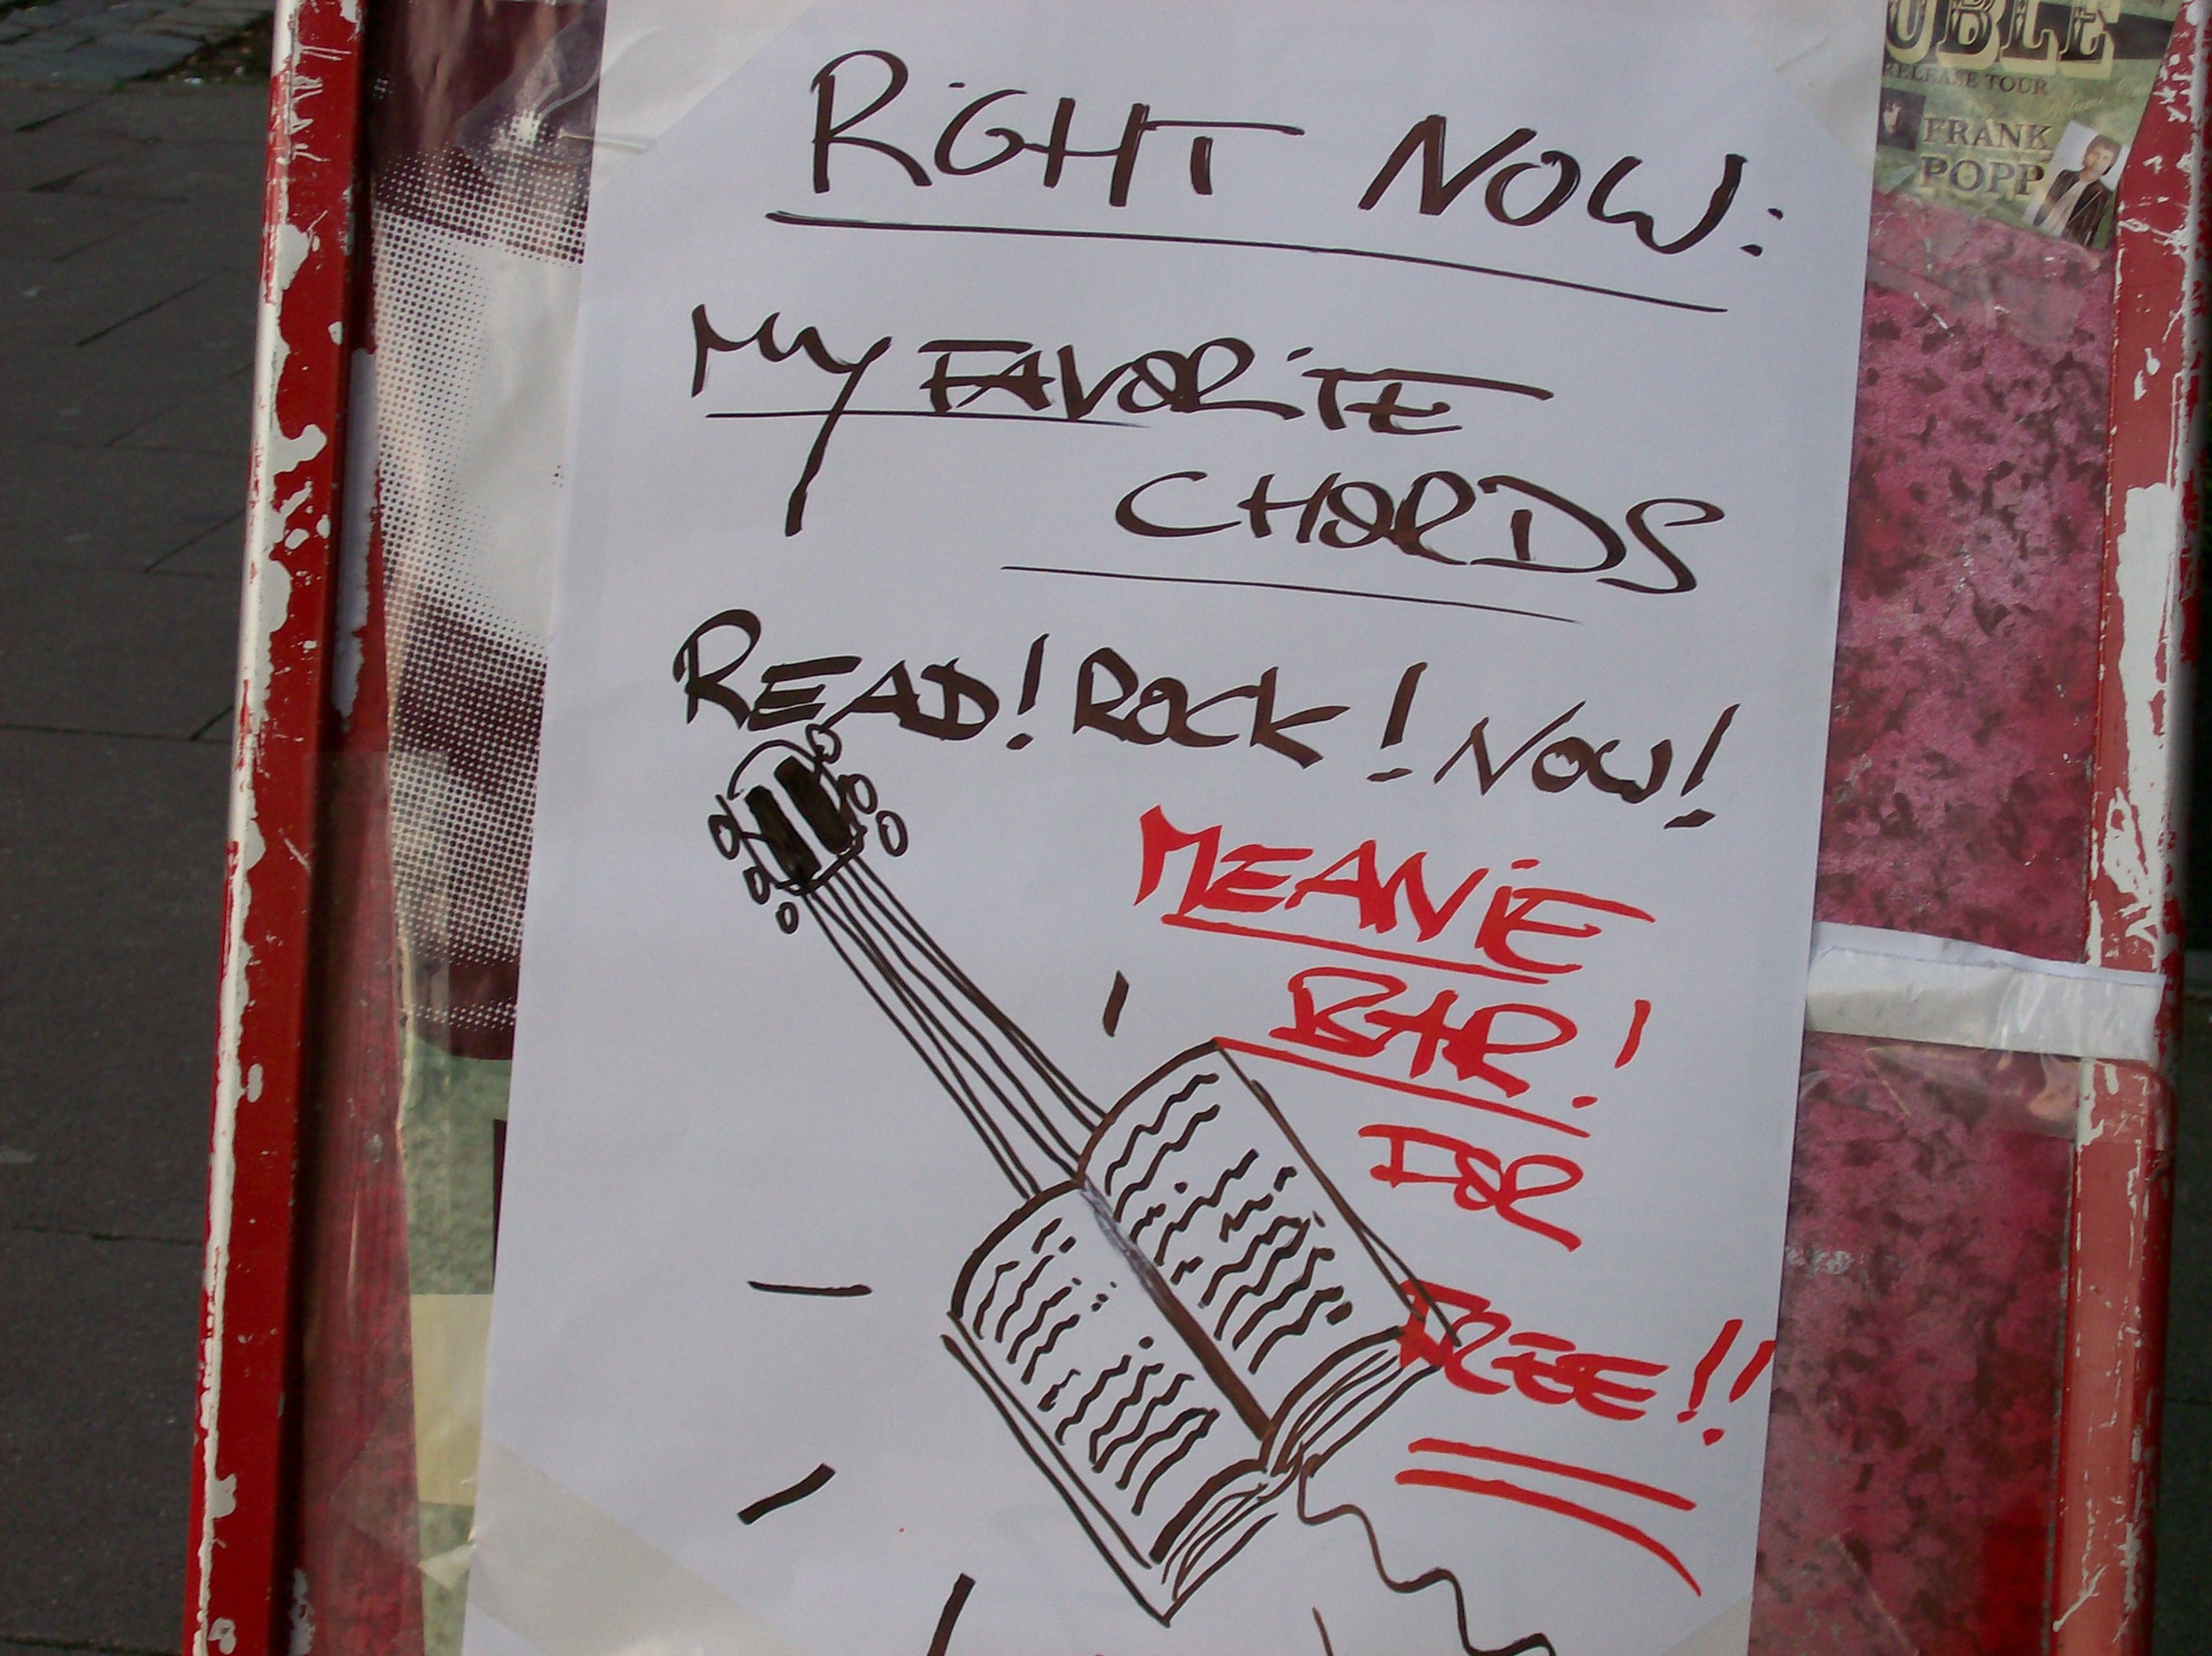 RiGHT NOW:
My FAVORiTE
CHORDS
READ! ROCK! NOW!
MEANiE
BAR!
FOR
FREE!!
UBLE
RELEASE TOUR
FRANK
POPP